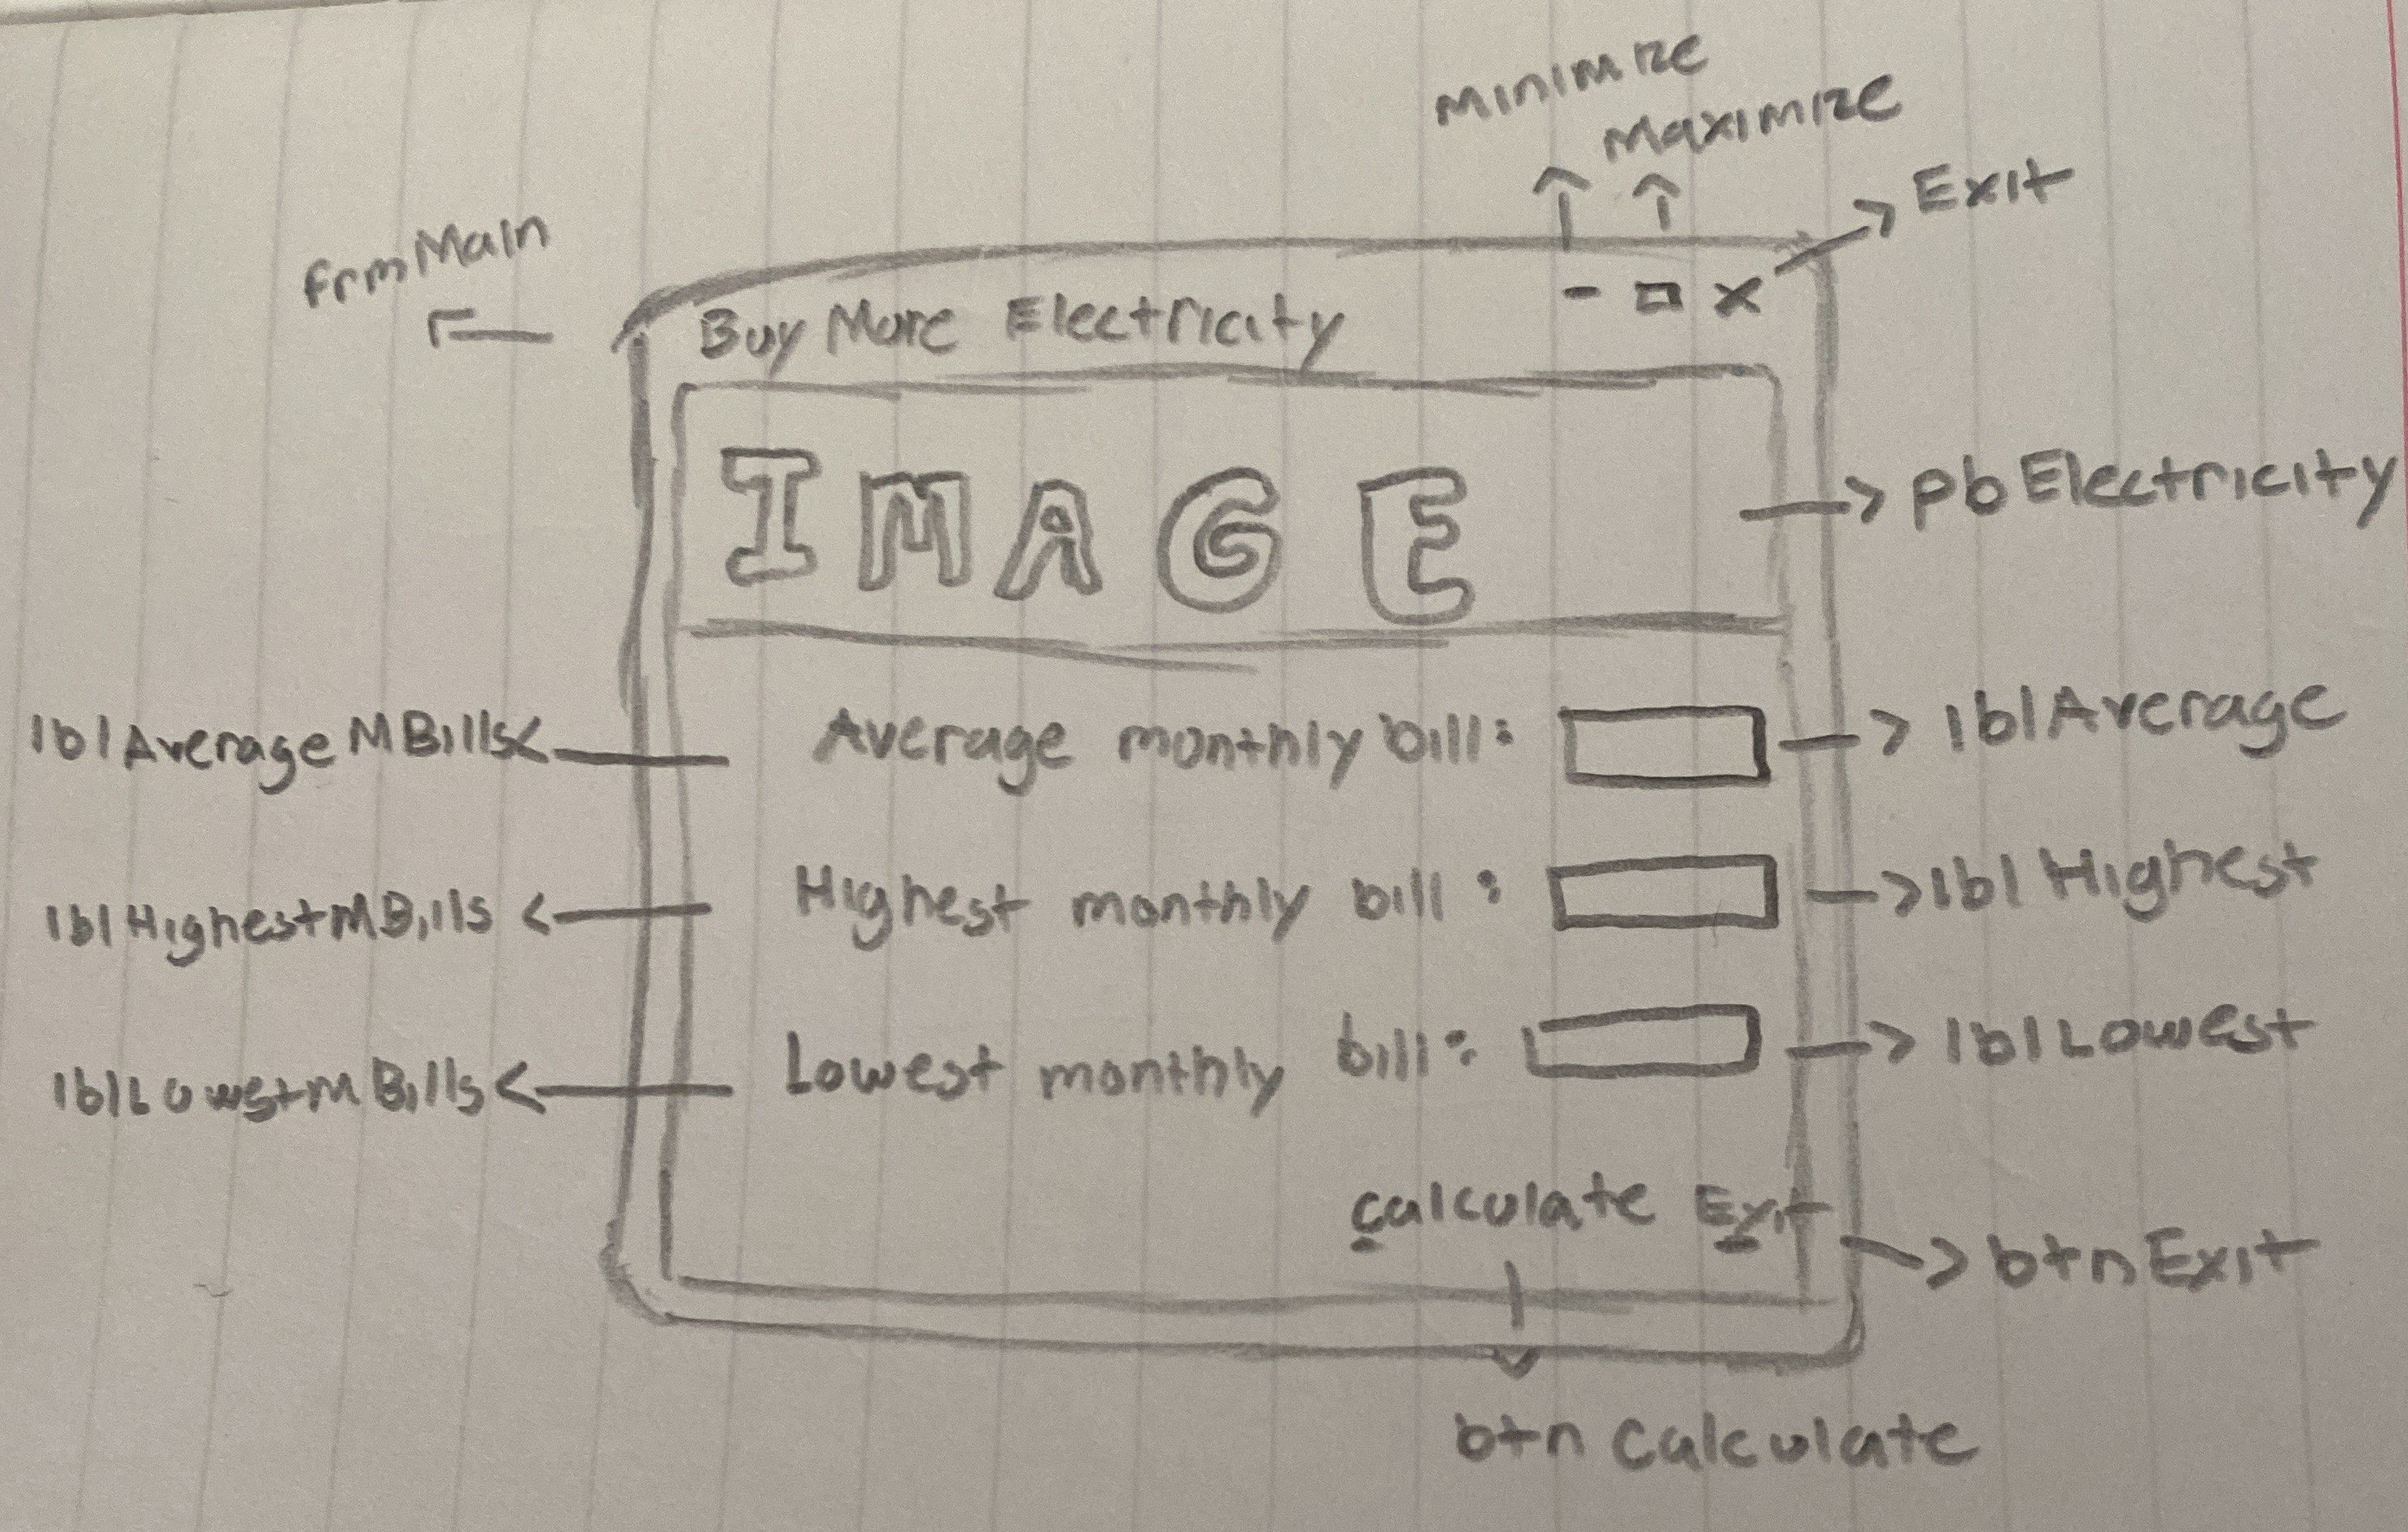 Minimize
Maximize
Exit
frmMain
Buy More Electricity - □ x
IMAGE
pbElectricity
lblAverageMBills
Average monthly bill:
lblAverage
lblHighestMBills
Highest monthly bill:
lblHighest
lblLowestMBills
Lowest monthly bill:
lblLowest
calculate Exit
btnExit
btn calculate